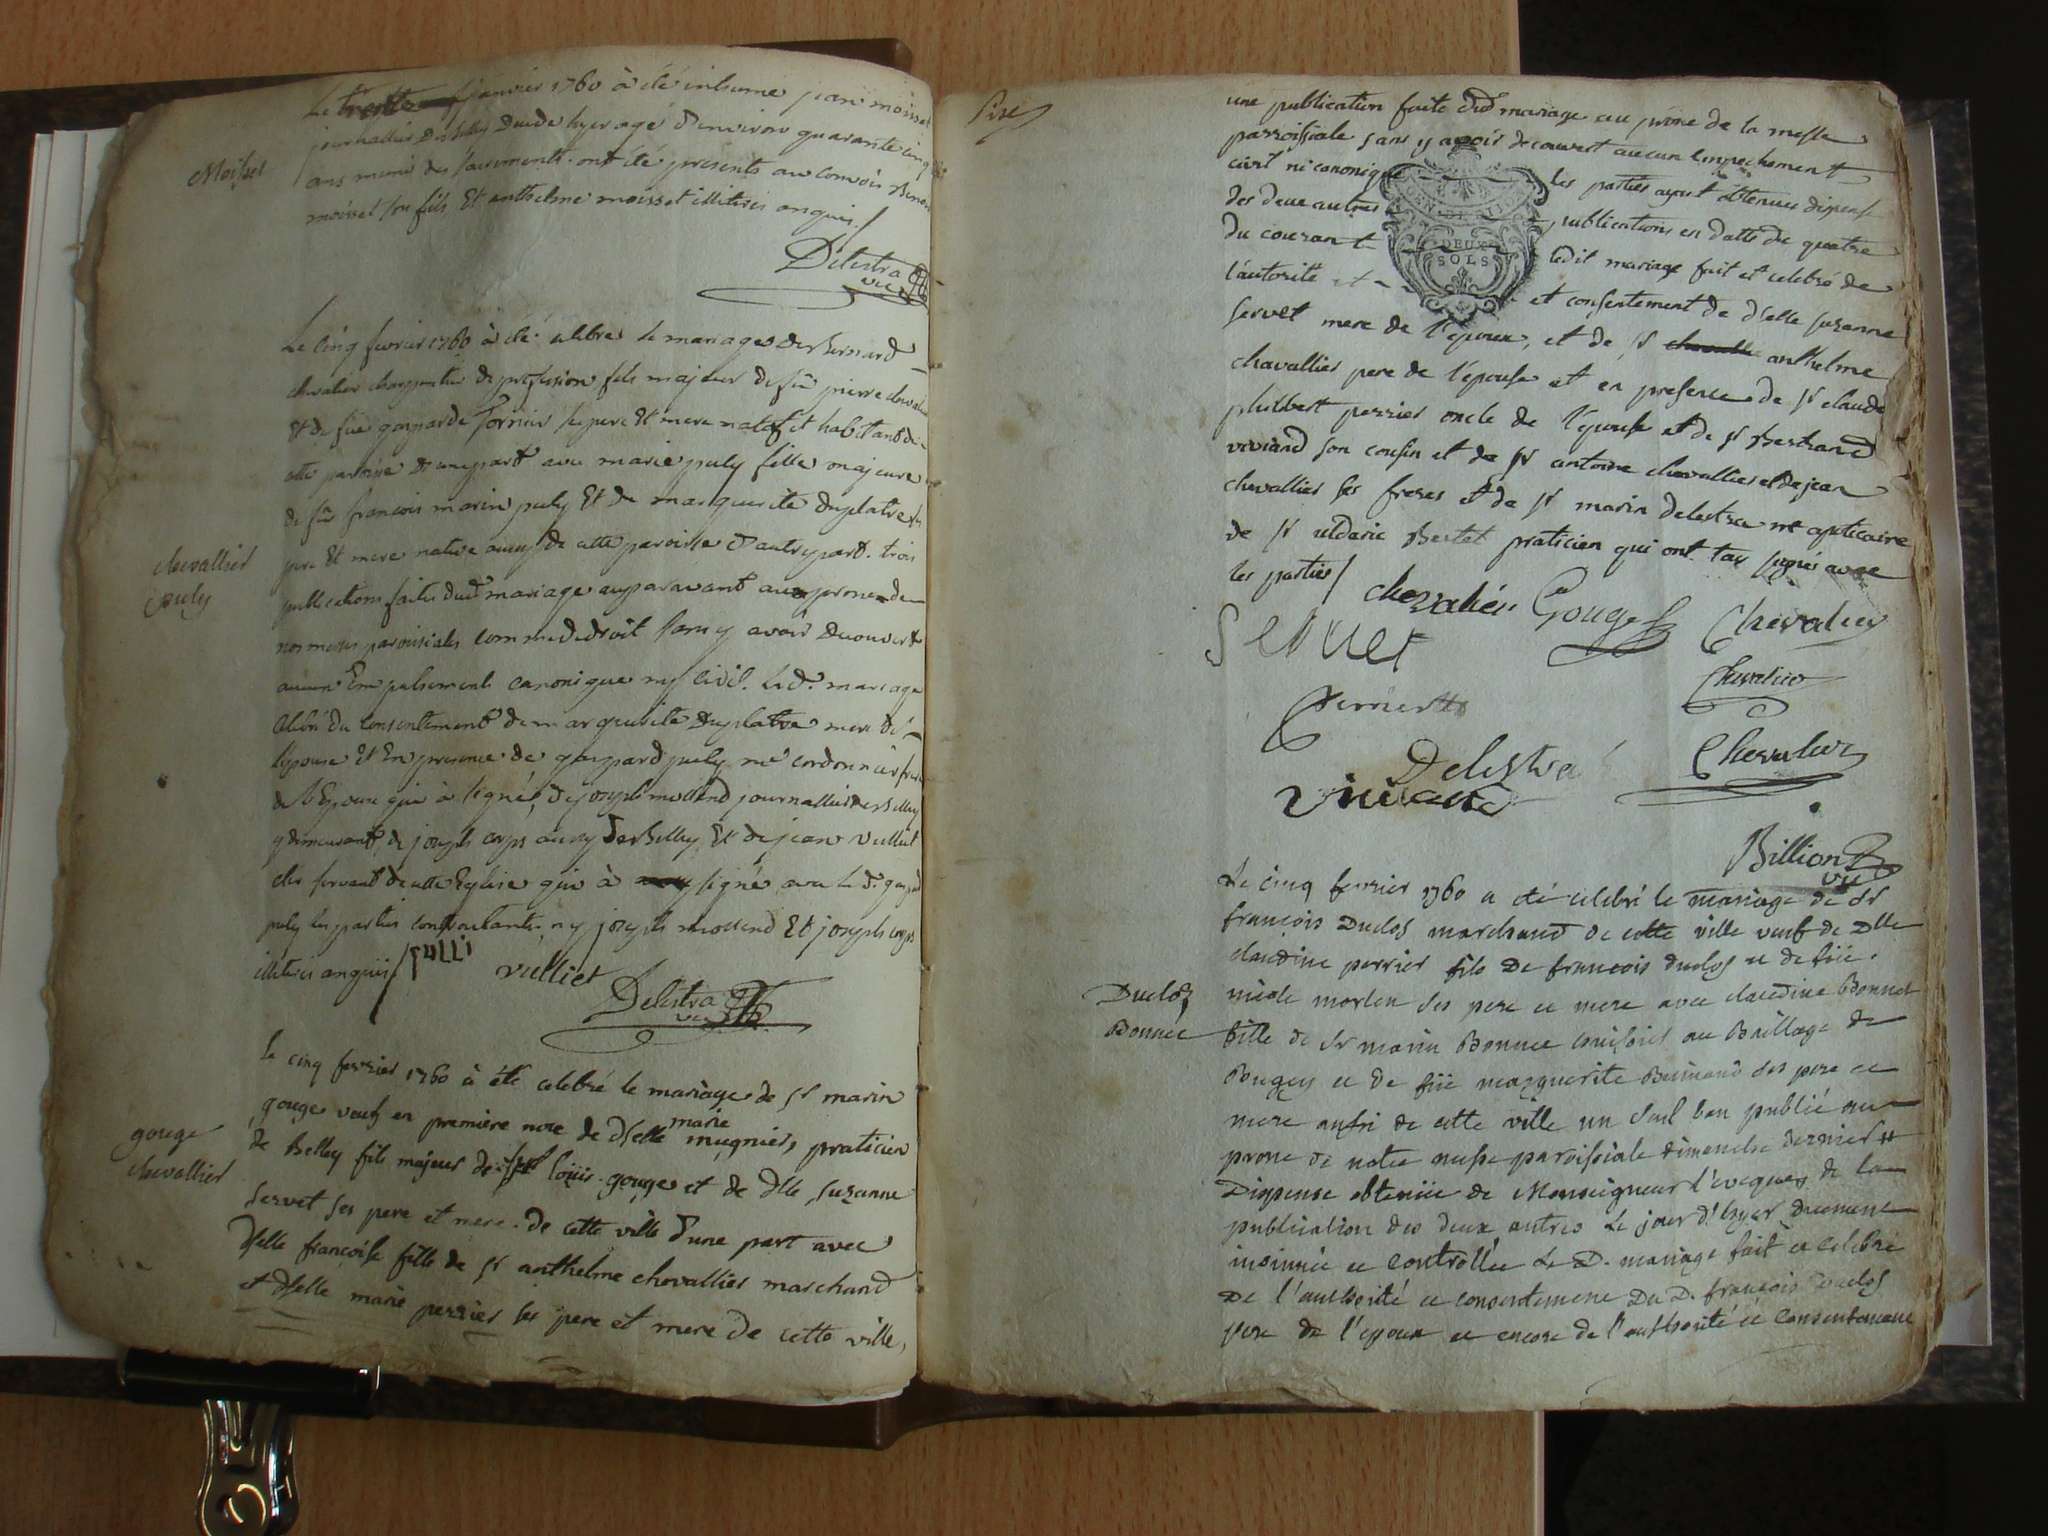 Moisset
Le janvier 1760 à été inhumé jean moisset
journallier de Belley decedé hyer agé d'environ quarante cinq
ans muni des sacrements. ont été presents au convois Benoit
moisset son fils Et anthelme moisset illiterés enquis /
Delestra
vic
chevallier
puly
Le cinq fevrier 1760 à été celebré le mariage de Bernard
chevalier charpentier de profession fils majeur de fû pierre chevalier
Et de fuë gasparde fornier ses pere Et mere natif et habitant de
cette paroisse d'une part avec marie puly fille majeure
de fû francois marin puly Et de marguerite duplatre ses
pere Et mere native aussy de cette paroisse d'autre part. trois
publications faites dud mariage auparavant au prone de
nos messes paroissiales comme de droit sans y avoir decouvert
aucun Empechement canonique ny civil. Le d. mariage
celebré du consentement de marguerite duplatre mere de
l'epouse Et En presence de gaspard puly me cordonnier frere
de l'Epouse qui à signé, de joseph mollend journallier de Belley
y demeurant, de joseph corps aussy de Belley Et de jean vulliet
clerc servant de cette Eglise qui à signé avec le d. gaspard
puly les parties contractantes ny joseph mollend Et joseph corps
illiterés enquis / PULLI vulliet
Delestra
vic
gouge
chevallier
le cinq fevrier 1760 à été celebré le mariage de sr marin
gouge veuf en premiere noce de dselle marie mugnier, praticien
de Belley fils majeur de sr loüis gouge et de dlle suzanne
servet ses pere et mere de cette ville d'une part avec
dselle francoise fille de sr anthelme chevallier marchand
et dselle marie perrier ses pere et mere de cette ville,
une publication faite dud mariage au prone de la messe
parroissiale sans y avoir decouvert aucun empechement
civil ni canonique les parties ayant obtenues dispense
des deux autres publications en datte du quatre
du courant ledit mariage fait et celebré de
l'autorité et consentement de dselle suzanne
servet mere de l'epoux, et de sr anthelme
chavallier pere de l'epouse et en presence de sr claude
philibert perrier oncle de l'epouse et de sr Bertrand
viviand son cousin et de sr antoine chevallier et de jean
chevallier ses freres et de sr marin delestra me apoticaire
de sr uldaric Bertet praticien qui ont tous signés avec
les parties /
DEUX
SOLS
chevalier Gouge Chevalier
Seruet
Chevalier
perrier
Delestra Chevalier
Viviand
Billion
vic
Duclos
Bonnet
Le cinq fevrier 1760 a été celebré le mariage de Sr
francois Duclos marchand de cette ville veuf de Dlle
claudine perrier fils de francois duclos et de füe
nicole morlon ses pere et mere avec claudine Bonnet
fille de Sr marin Bonnet huissier au Baillage de
Bougey et de füe marguerite ses pere et
mere aussi de cette ville un seul ban publié au
prone de notre messe paroissiale dimanche dernier
Dispense obtenüe de Monseigneur l'eveque de la
publication des deux autres le jour d'hyer duement
insinuée et controllée le D. mariage fait et celebré
De l'authorité et consentement Du D. francois Duclos
pere de l'epoux et encore de l'authorité et consentement